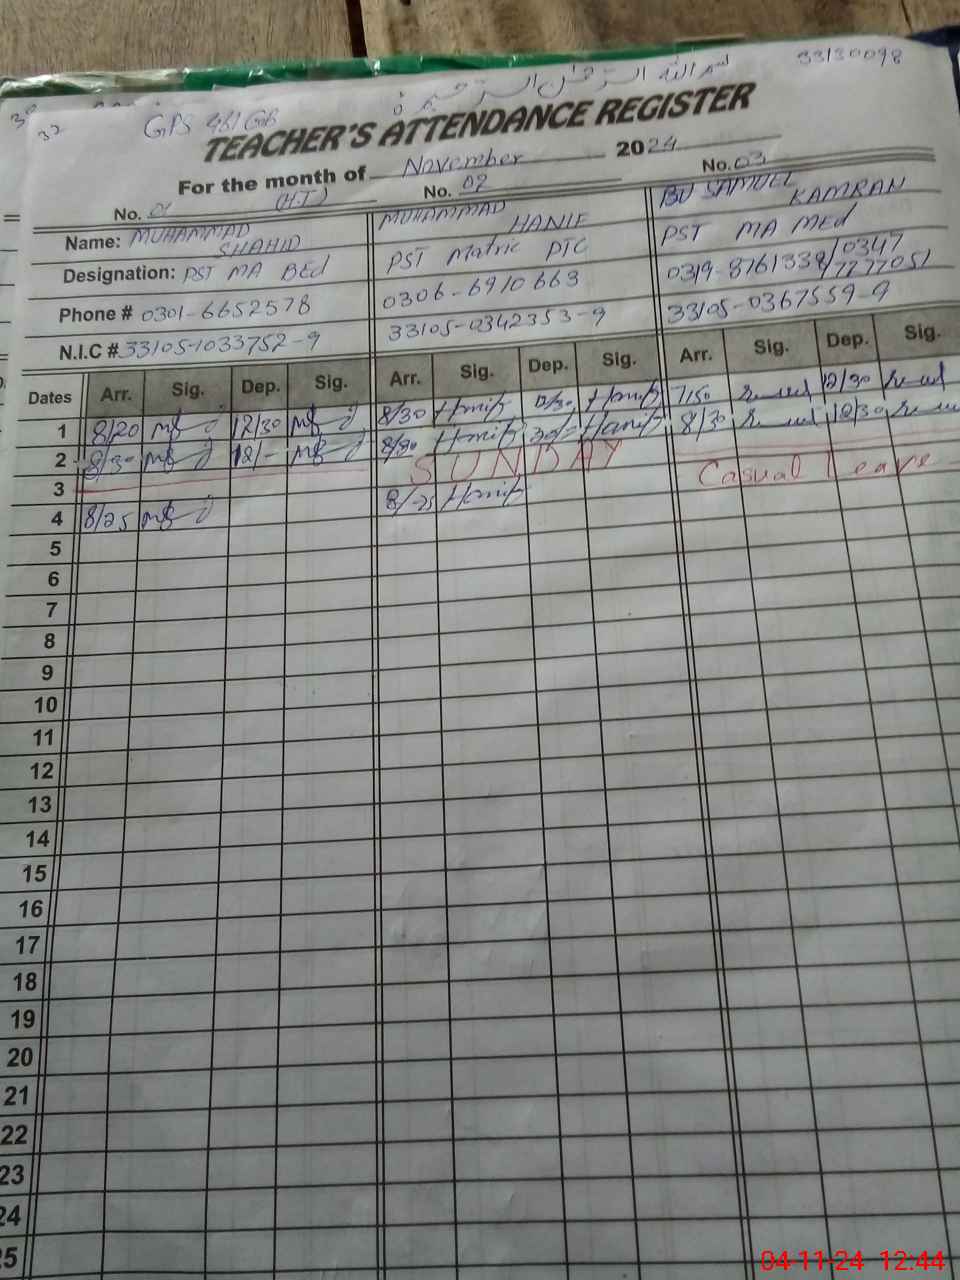 33130098
بسم اللہ الرحمٰن الرحیم
37 GPS 481 GB
TEACHER'S ATTENDANCE REGISTER
For the month of November 2024
No. 01 (H.T) No. 02 No. 03
Name: MUHAMMAD SHAHID MUHAMMAD HANIF BU SAMUEL KAMRAN
Designation: PST MA BEd PST Matric PTC PST MA MEd
Phone # 0301-6652578 0306-6910663 0319-8761338/0347
N.I.C # 33105-1033752-9 33105-0342353-9 33105-0367559-9
Dates Arr. Sig. Dep. Sig. Arr. Sig. Dep. Sig. Arr. Sig. Dep. Sig.
1 8/20 12/30 8/30 Hanif 12/30 Hanif 7/50 12/30
2 8/30 12/- 8/30 Hanif Hanif 8/30 12/30
3 SUNDAY
4 8/25 8/25 Hanif Casual Leave
5
6
7
8
9
10
11
12
13
14
15
16
17
18
19
20
21
22
23
24
25
04-11-24 12:44